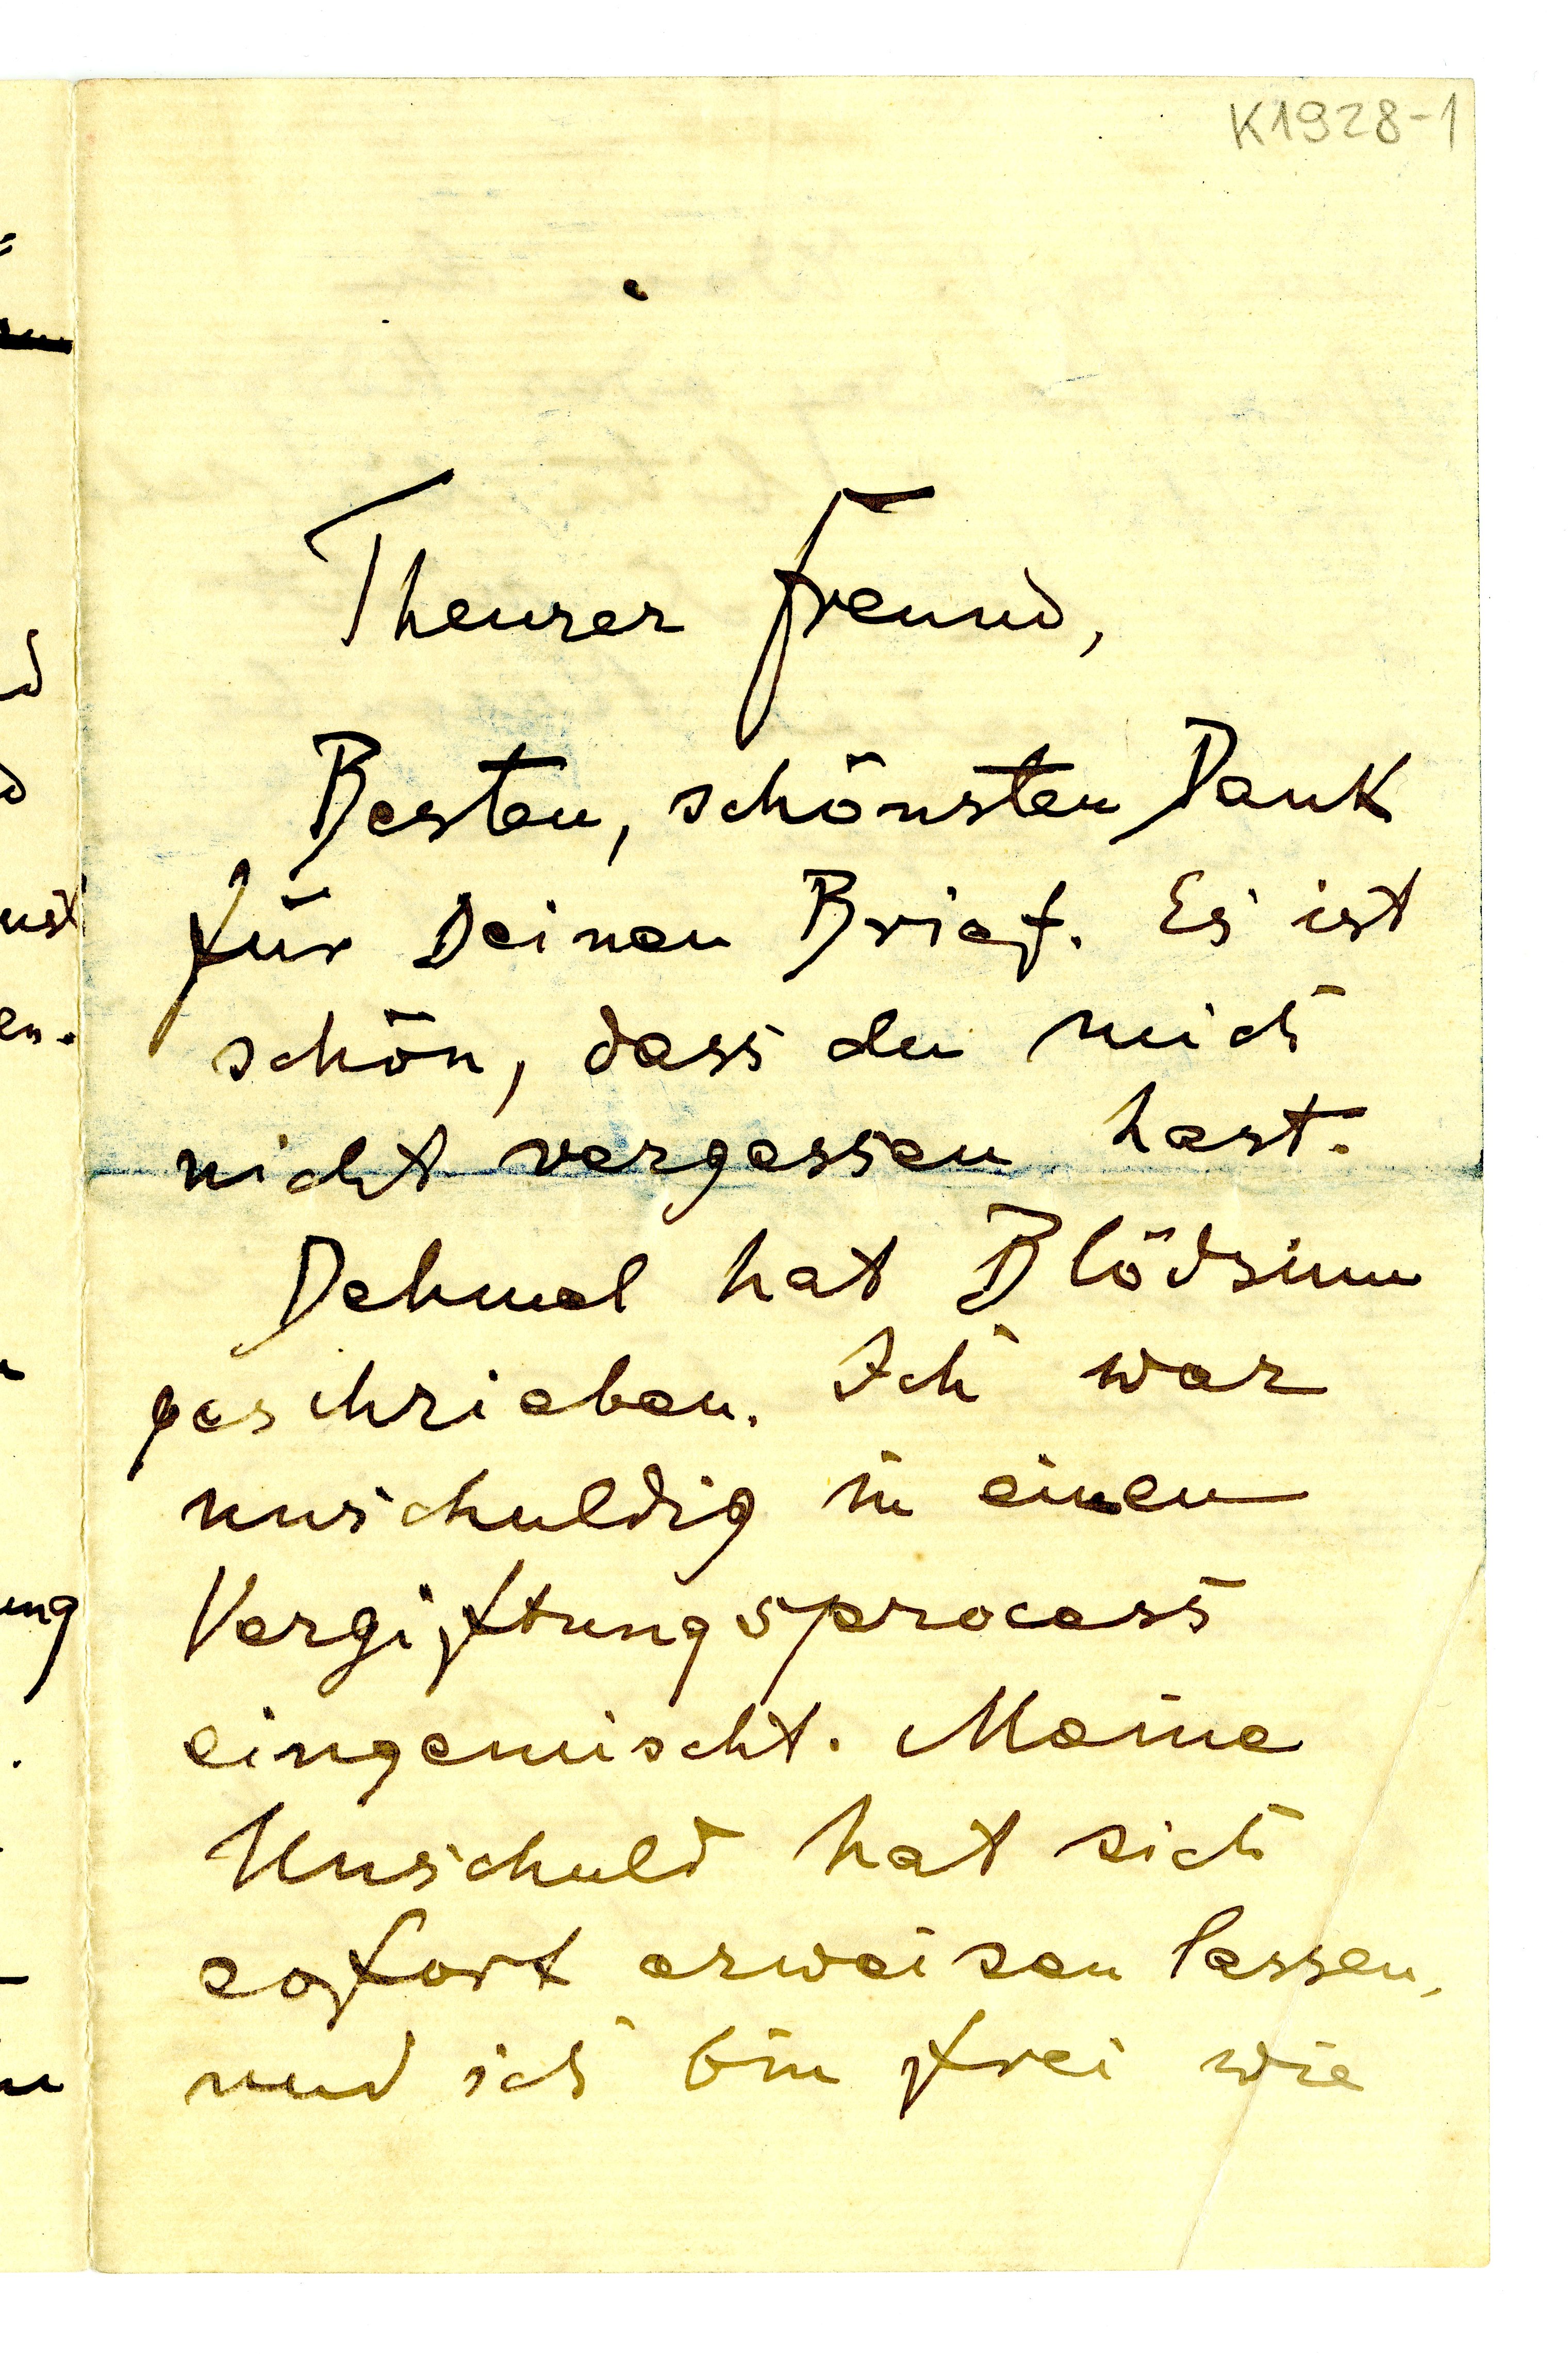 K1928-1
Theurer Freund,
Besten, schönsten Dank
für Deinen Brief. Es ist
schön, dass du mich
nicht vergessen hast.
Dehmel hat Blödsinn
geschrieben. Ich war
unschuldig in einen
Vergiftungsprocess
eingemischt. Meine
Unschuld hat sich
sofort erweisen lassen,
und ich bin frei wie